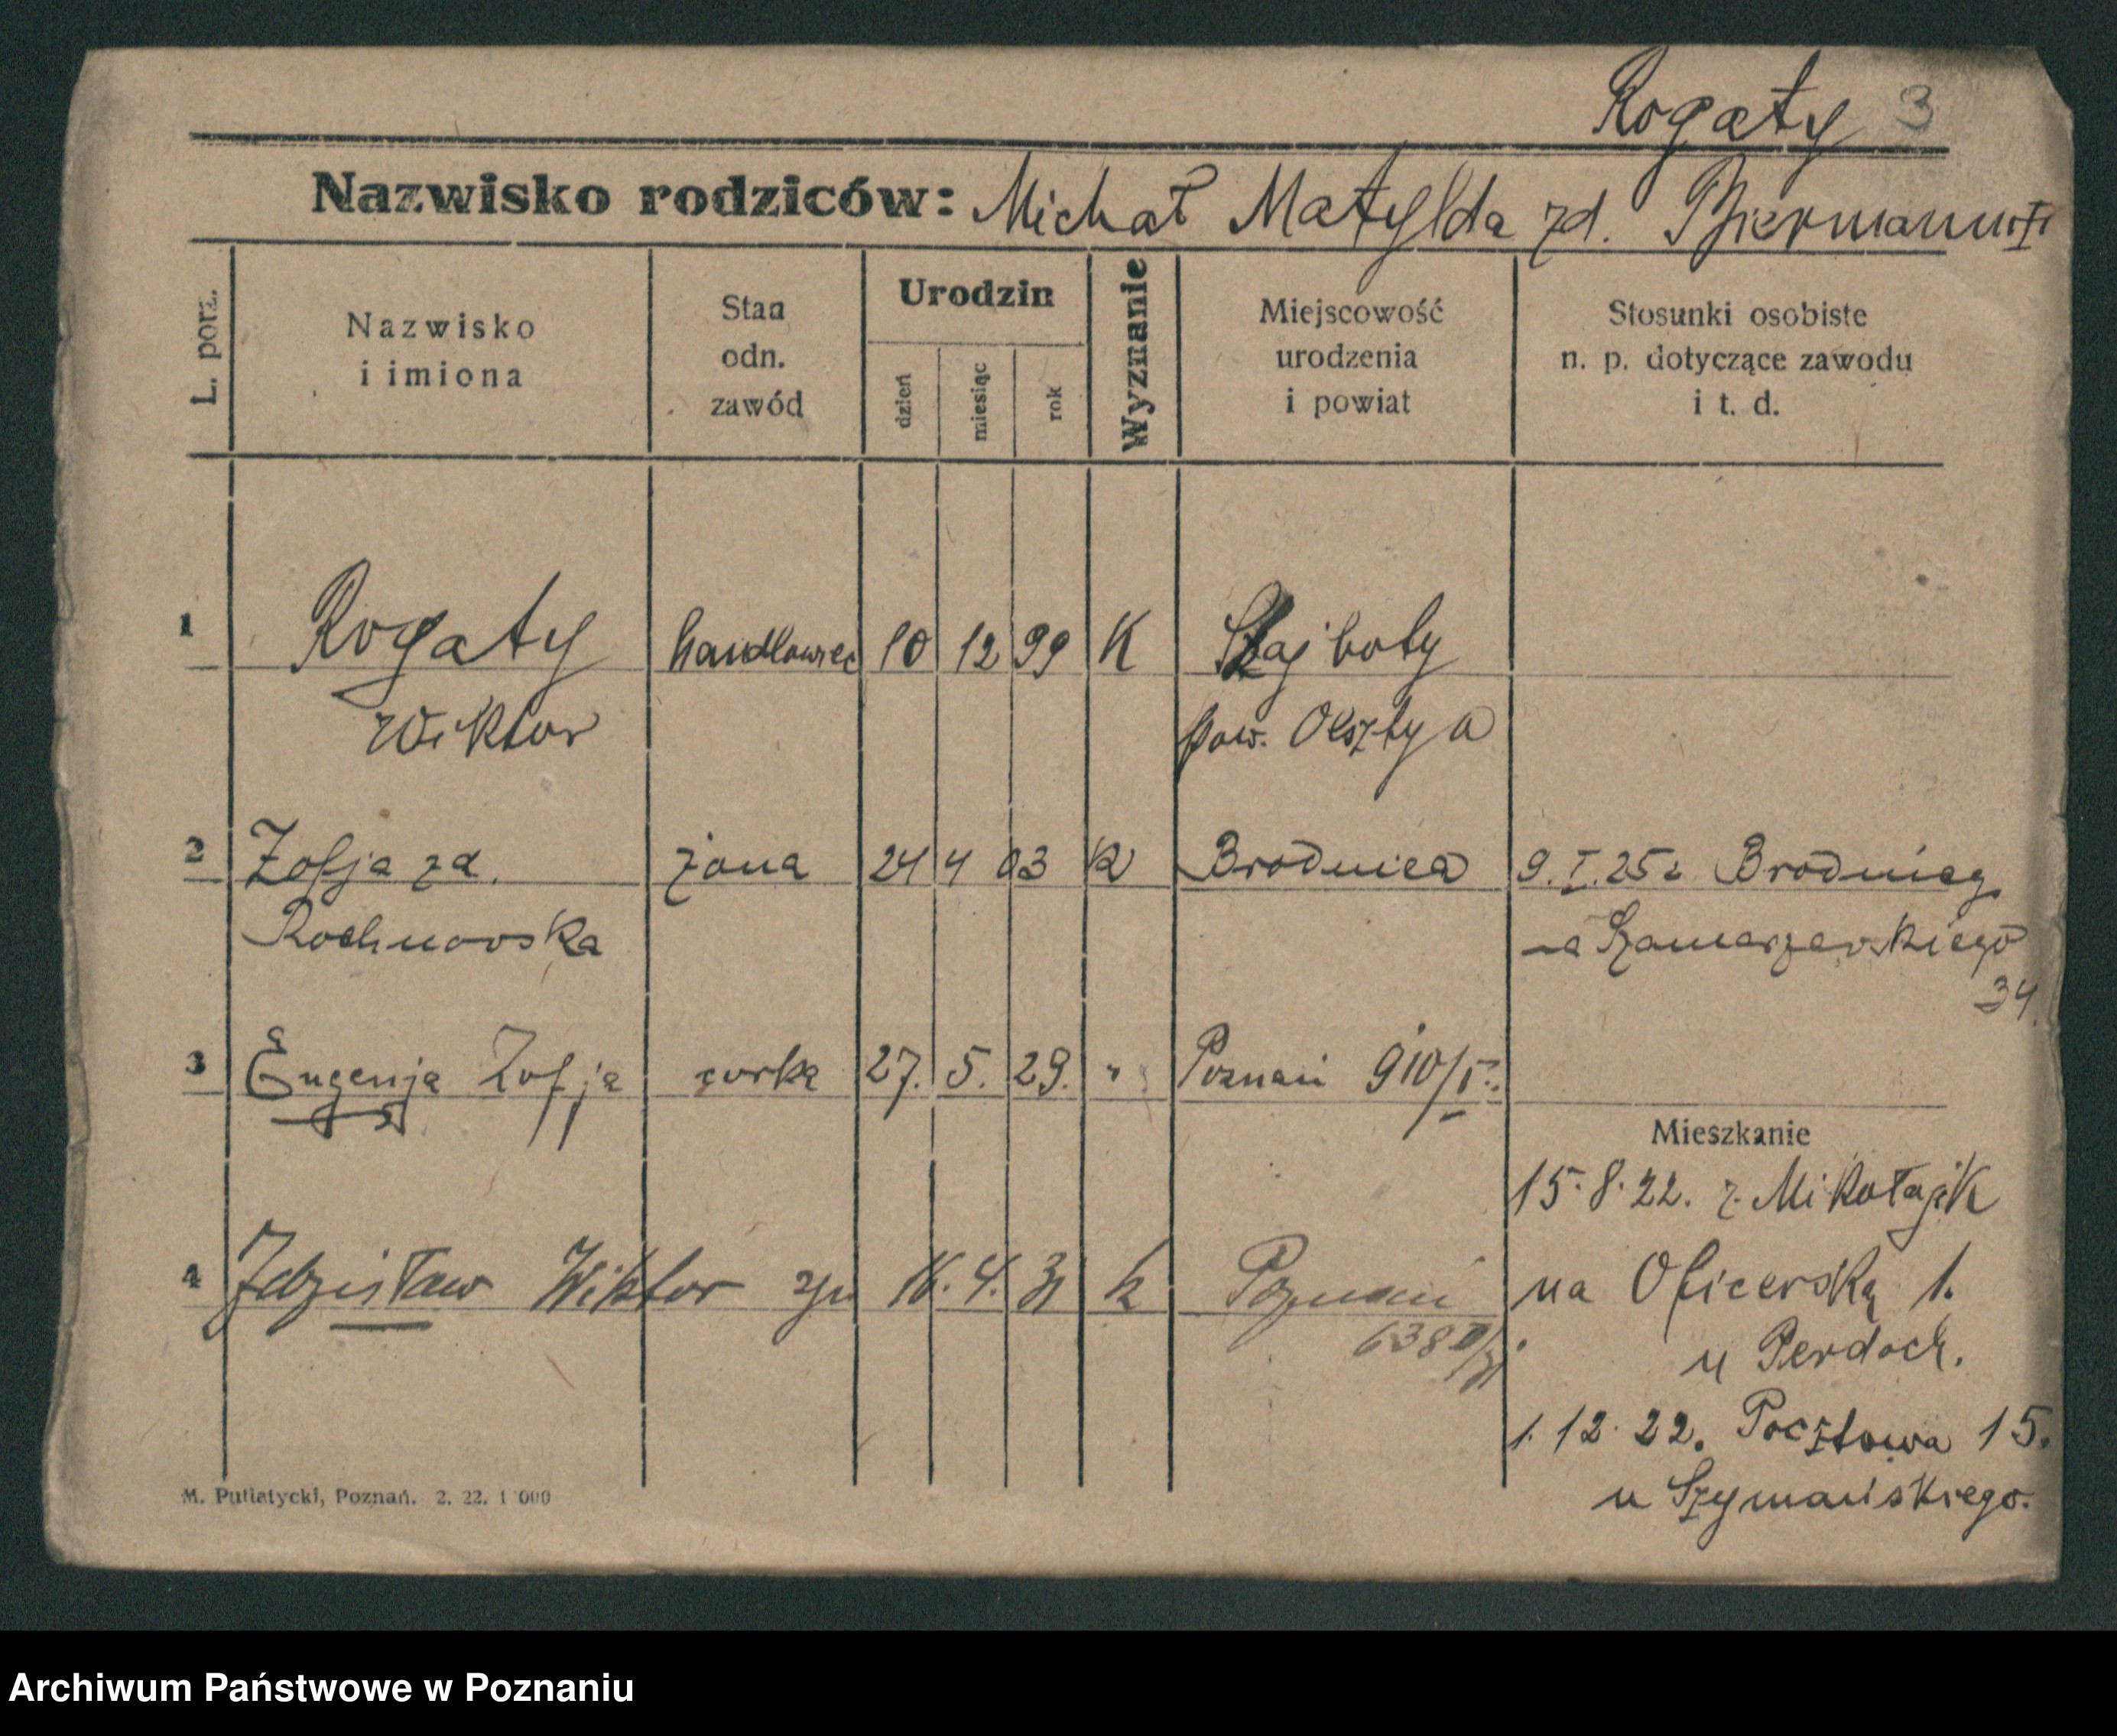 Rogaty 3
Nazwisko rodziców: Michał Matylda zd. Biermann
L. porz.
Nazwisko
i imiona
Stan
odn.
zawód
Urodzin
dzień
miesiąc
rok
Wyznanie
Miejscowość
urodzenia
i powiat
Stosunki osobiste
n. p. dotyczące zawodu
i t. d.
1 Rogaty handlowiec 10 12 99 K Szajboty
Wiktor pow. Olsztyn
2 Zofja zd. żona 24 4 03 K Brodnica 9.I.25 z Brodnicy
Rochnowska na Szamarzewskiego
34.
3 Eugenja Zofja córka 27. 5. 29. " Poznań 910/I.
Mieszkanie
15.8.22. z Mikołajk
4 Zdzisław Wiktor syn 16. 4. 31 k Poznań
na Oficerską 1.
638
u Perdoch.
1.12.22. Pocztowa 15.
u Szymańskiego.
M. Putiatycki, Poznań. 2. 22. 1 000
Archiwum Państwowe w Poznaniu